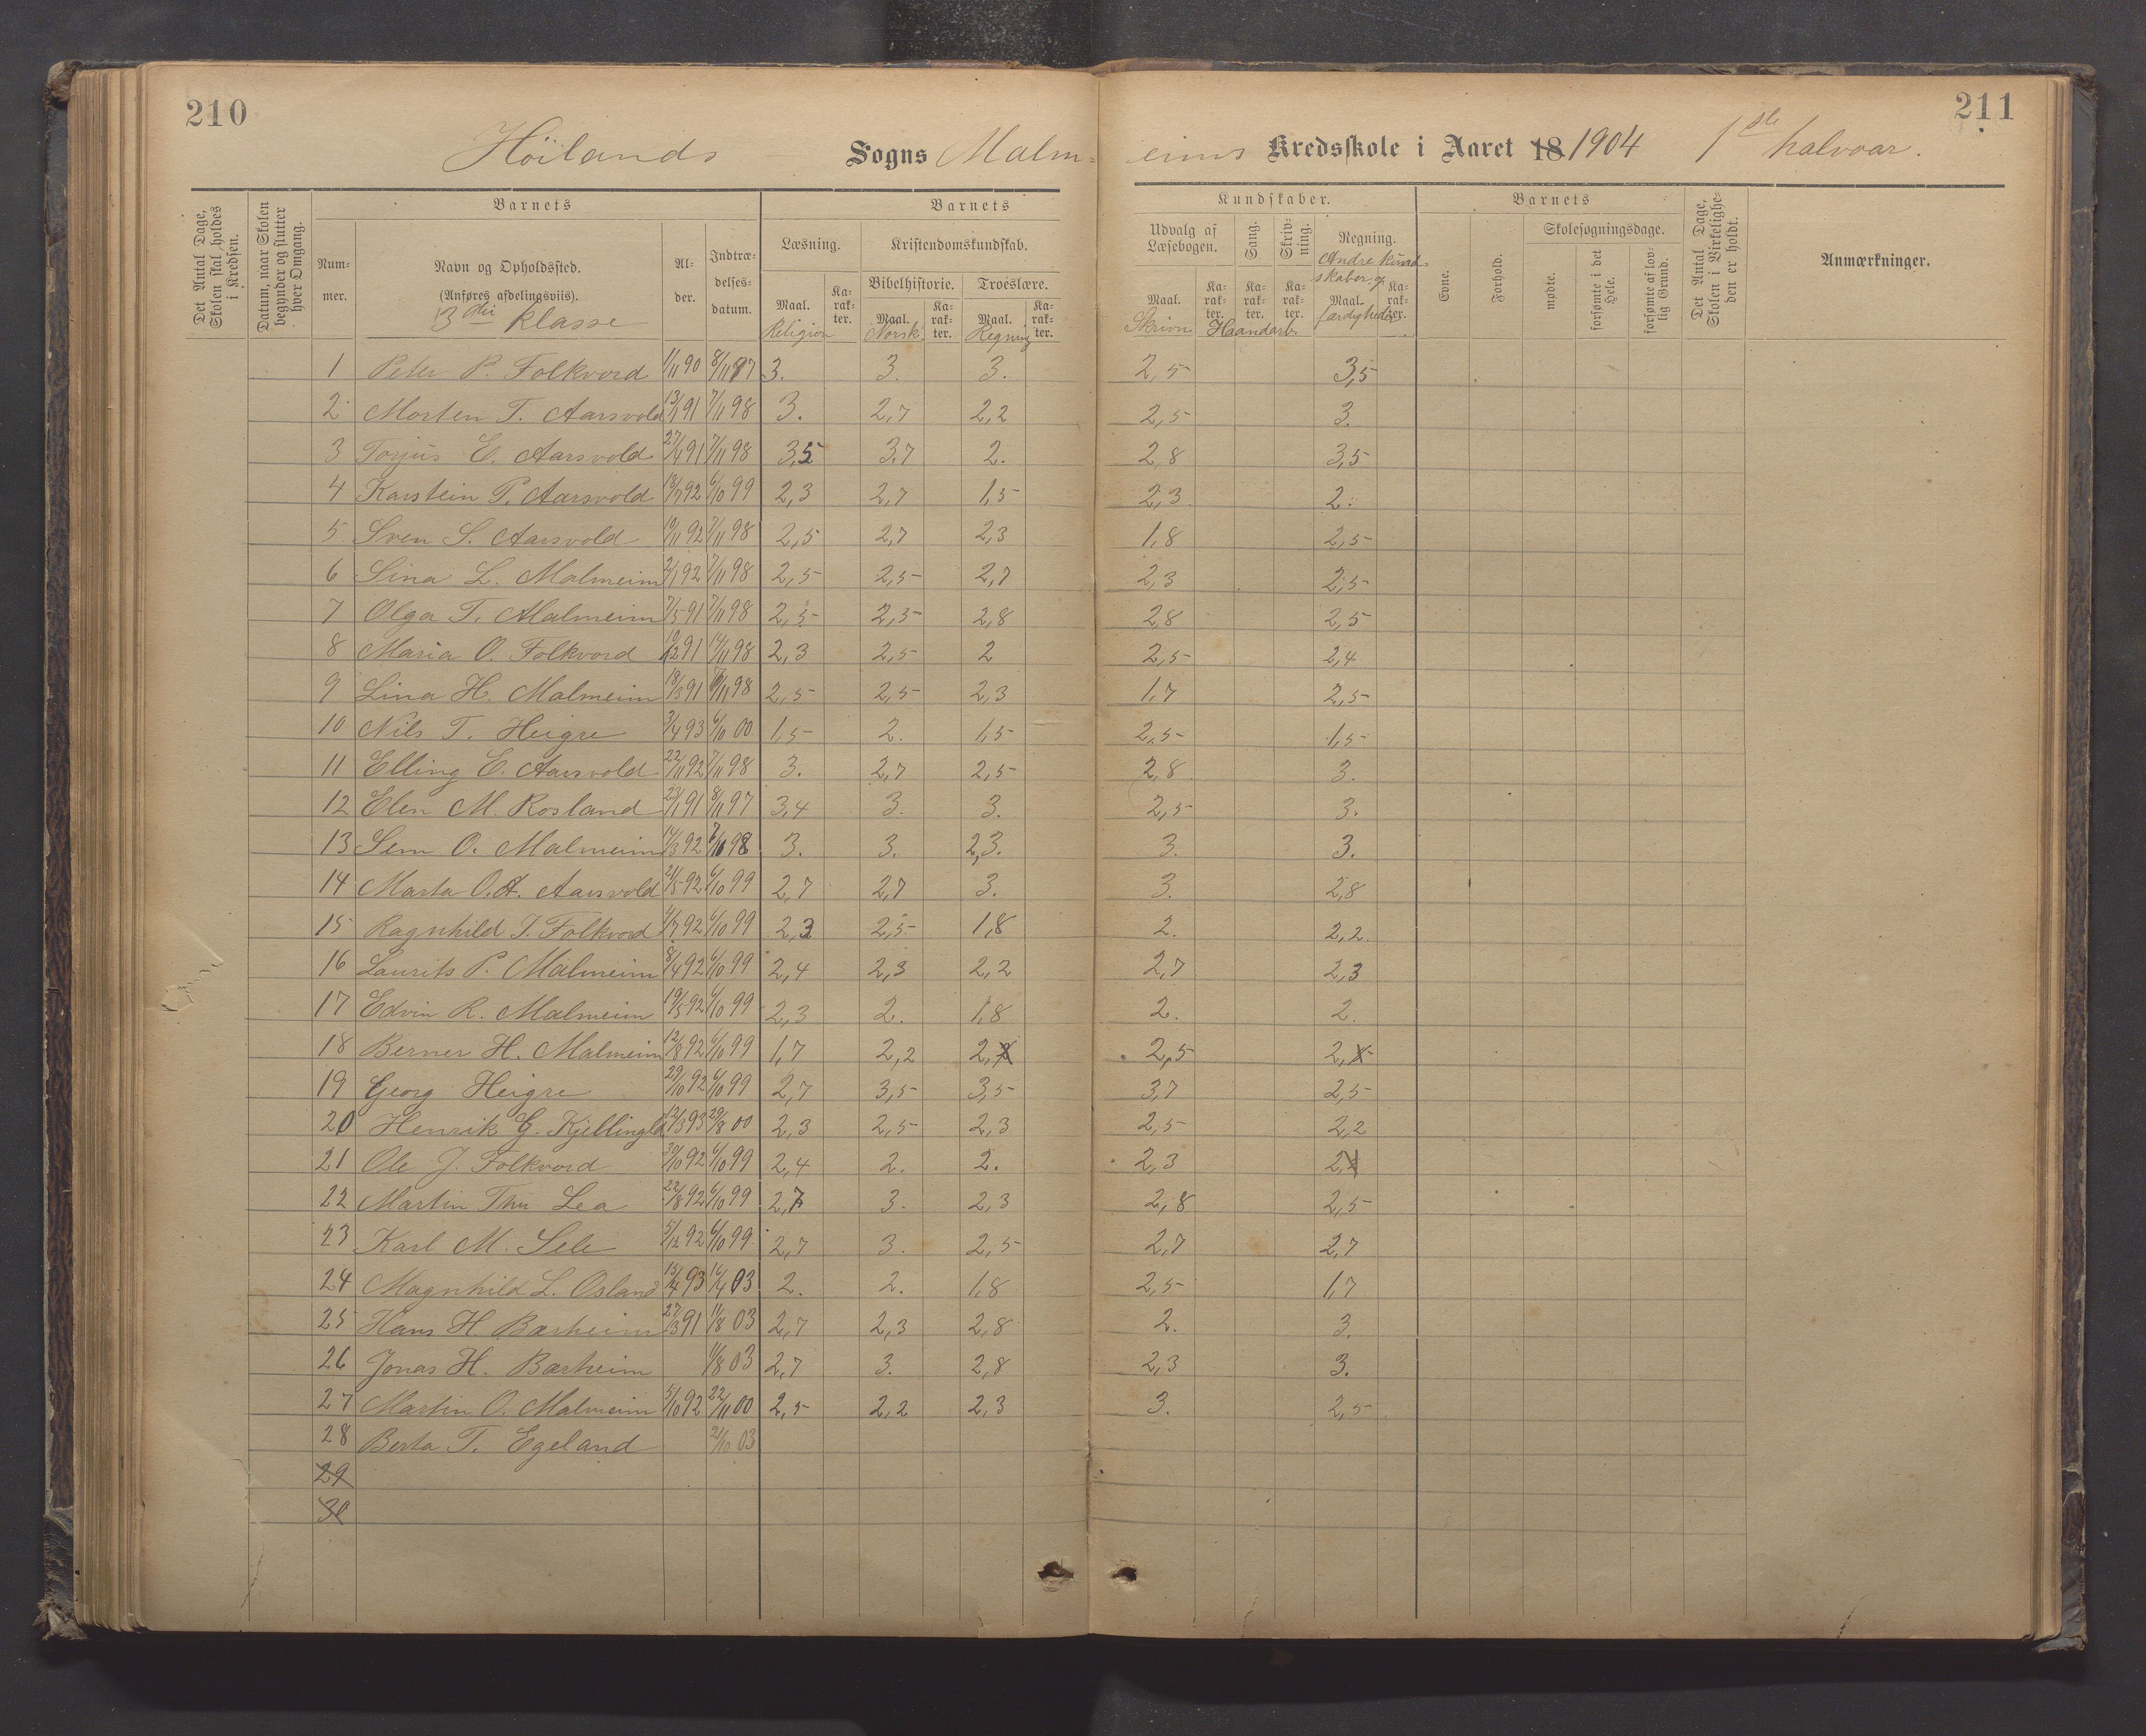 210
211
Höilands Sogns Malm-eims Kredsskole i Aaret 18 1904 1ste halvaar.
Det Antal Dage, Skolen skal holdes i Kredsen.
Datum, naar Skolen begynder og slutter hver Omgang.
Barnets
Num-mer.
Navn og Opholdssted.
(Anføres afdelingsviis).
3die klasse
Al-der.
Indtræ-delses-datum.
Barnets
Kundskaber.
Læsning.
Kristendomskundskab.
Bibelhistorie.
Troeslære.
Maal.
Ka-rak-ter.
Maal.
Ka-rak-ter.
Maal.
Ka-rak-ter.
Religion
Norsk
Regning
Udvalg af Læsebogen.
Sang.
Skriv-ning.
Regning.
Andre kund-skaber og færdigheder
Maal.
Ka-rak-ter.
Ka-rak-ter.
Ka-rak-ter.
Maal.
Ka-rak-ter.
Skrivn
Haandarb.
Barnets
Evne.
Forhold.
Skolesøgningsdage.
mødte.
forsømte i det Hele.
forsømte af lov-lig Grund.
Det Antal Dage, Skolen i Virkelighe-den er holdt.
Anmærkninger.
1 Peter P. Folkvord 1/11 90 8/11 97 3. 3. 3. 2,5 3,5
2 Morten T. Aarsvold 13/1 91 7/11 98 3. 2,7 2,2 2,5 3.
3 Torjus E. Aarsvold 27/4 91 7/11 98 3,5 3,7 2. 2,8 3,5
4 Karstein P. Aarsvold 18/7 92 6/10 99 2,3 2,7 1,5 2,3 2.
5 Sven S. Aarsvold 19/11 92 7/11 98 2,5 2,7 2,3 1,8 2,5
6 Sina L. Malmeim 2/1 92 7/11 98 2,5 2,5 2,7 2,3 2,5
7 Olga T. Malmeim 7/5 91 7/11 98 2,5 2,5 2,8 2,8 2,5
8 Maria O. Folkvord 19/12 91 14/11 98 2,3 2,5 2 2,5 2,4
9 Lina H. Malmeim 18/3 91 7/11 98 2,5 2,5 2,3 1,7 2,5
10 Nils T. Heigre 3/4 93 6/10 00 1,5 2. 1,5 2,5 1,5
11 Elling E. Aarsvold 22/11 92 7/11 98 3. 2,7 2,5 2,8 3.
12 Elen M. Rosland 23/1 91 8/11 97 3,4 3. 3. 2,5 3.
13 Sem O. Malmeim 14/3 92 7/11 98 3. 3. 2,3. 3. 3.
14 Marta O.A. Aarsvold 21/5 92 6/10 99 2,7 2,7 3. 3. 2,8
15 Ragnhild J. Folkvord 4/7 92 6/10 99 2,3 2,5 1,8 2. 2,2
16 Laurits P. Malmeim 8/4 92 6/10 99 2,4 2,3 2,2 2,7 2,3
17 Edvin R. Malmeim 19/5 92 6/10 99 2,3 2. 1,8 2. 2.
18 Berner H. Malmeim 12/8 92 6/10 99 1,7 2,2 2, 2,5 2,
19 Georg Heigre 29/10 92 6/10 99 2,7 3,5 3,5 3,7 2,5
20 Henrik G. Kjellingld 12/3 93 29/8 00 2,3 2,5 2,3 2,5 2,2
21 Ole J. Folkvord 30/10 92 6/10 99 2,4 2. 2. 2,3 2,
22 Martin Thu Lea 22/8 92 6/10 99 2,7 3. 2,3 2,8 2,5
23 Karl M. Sele 5/12 92 6/10 99 2,7 3. 2,5 2,7 2,7
24 Magnhild L. Osland 15/4 93 16/4 03 2. 2. 1,8 2,5 1,7
25 Hans H Barheim 27/3 91 11/8 03 2,7 2,3 2,8 2. 3.
26 Jonas H. Barheim 11/8 03 2,7 3. 2,8 2,3 3.
27 Martin O. Malmeim 5/10 92 22/11 00 2,5 2,2 2,3 3. 2,5
28 Berta T. Egeland 21/10 03
29
30